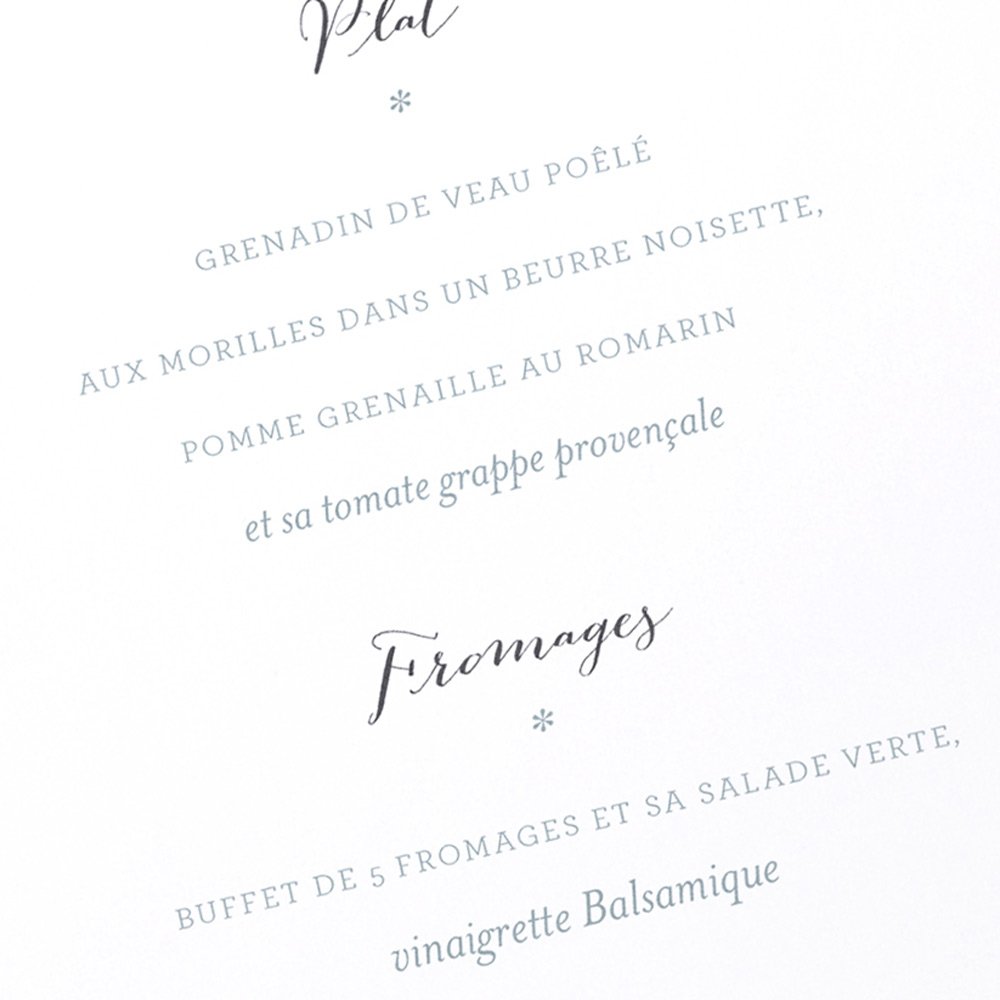 Plat
*
GRENADIN DE VEAU POÊLÉ
AUX MORILLES DANS UN BEURRE NOISETTE,
POMME GRENAILLE AU ROMARIN
et sa tomate grappe provençale
Fromages
*
BUFFET DE 5 FROMAGES ET SA SALADE VERTE,
vinaigrette Balsamique